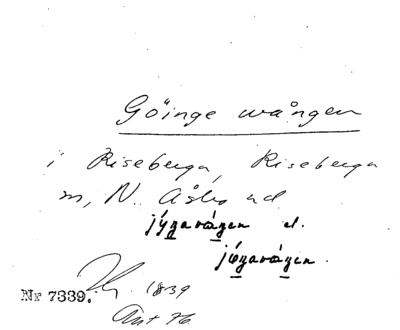 Göinge wången
i Riseberga, Riseberga
m, N. Åsbo hd
jýgavágen el.
jógavágen.
Nr 7339. 1839
Ant 76.